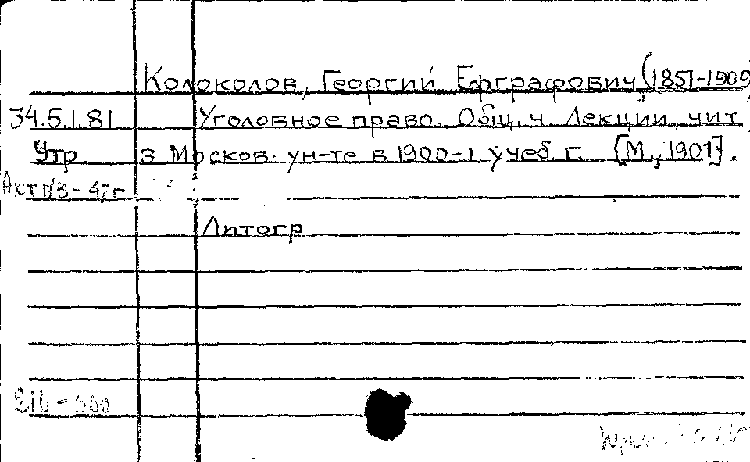 Колоколов, Георгий Евграфович (1851-1909
34.5.1.81 Уголовное право. Общ. ч. Лекции, чит
Утр в Москов. ун-те в 1900-1 учеб. г. [М., 1901].
Акт
Литогр